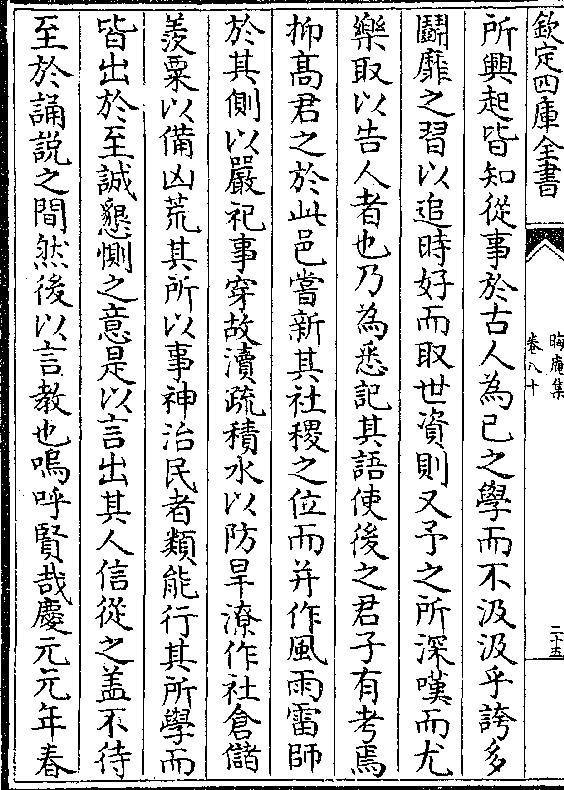 欽定四庫全書
晦庵集
卷八十
二十五
所興起皆知從事於古人為己之學而不汲汲乎誇多
鬭靡之習以追時好而取世資則又予之所深嘆而尤
樂取以告人者也乃為悉記其語使後之君子有考焉
抑髙君之於此邑嘗新其社稷之位而并作風雨雷師
於其側以嚴祀事穿故瀆疏積水以防旱潦作社倉儲
羨粟以備凶荒其所以事神治民者類能行其所學而
皆出於至誠懇惻之意是以言出其人信從之盖不待
至於誦説之間然後以言教也嗚呼賢哉慶元元年春